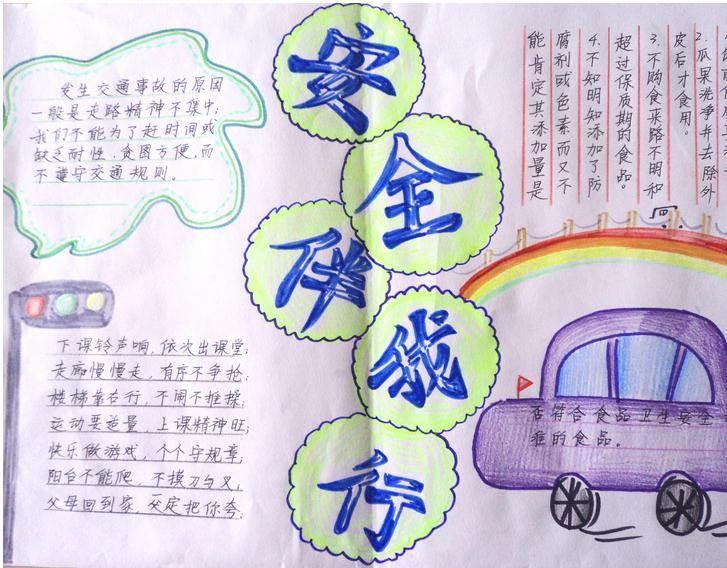 安全伴我行
发生交通事故的原因
一般是走路精神不集中;
我们不能为了赶时间或
缺乏耐性,贪图方便,而
不遵守交通规则。
下课铃声响,依次出课堂;
走廊慢慢走,有序不争抢;
楼梯靠右行,不闹不推搡;
运动要适量,上课精神旺;
快乐做游戏,个个守规章;
阳台不能爬,不摸刀与叉,
父母回到家,一定把你夸;
2.瓜果洗净并去除外
皮后才食用。
3.不购食来路不明和
超过保质期的食品。
4.不知明知添加了防
腐剂或色素而又不
能肯定其添加量是
否符合食品卫生安全
准的食品。